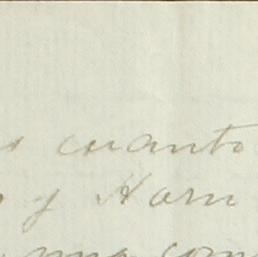 cuanto
y Harn
una com